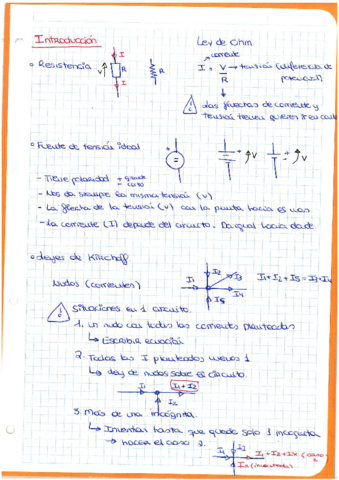 Introducción
Ley de Ohm
corriente
Resistencia
V
I
R
I
R
I = V → tensión (diferencia de
R
potencial)
! Las flechas de corriente y
tensión tienen
Fuente de tensión ideal
+
V
+
V
- Tiene polaridad + grande
- corto
- Nos da siempre la misma tensión (V)
- La flecha de la tensión (V) con la punta hacia el más
- La corriente (I) depende del circuito. Da igual hacia donde
Leyes de Kirchoff
Nudos (corrientes)
I1
I2
I3
I4
I5
I1+I2+I5=I3+I4
! Situaciones en 1 circuito.
1. Un nudo con todas las corrientes planteadas
↳ Escribir ecuación
2. Todas las I planteadas menos 1
↳ Ley de nudos sobre el circuito.
I1
I1+I2
I2
3. Más de una incógnita.
↳ Inventar hasta que quede solo 1 incógnita
→ hacer el caso 2.
I1
I2
I1+I2+Ix (caso 2
Ix (inventada)